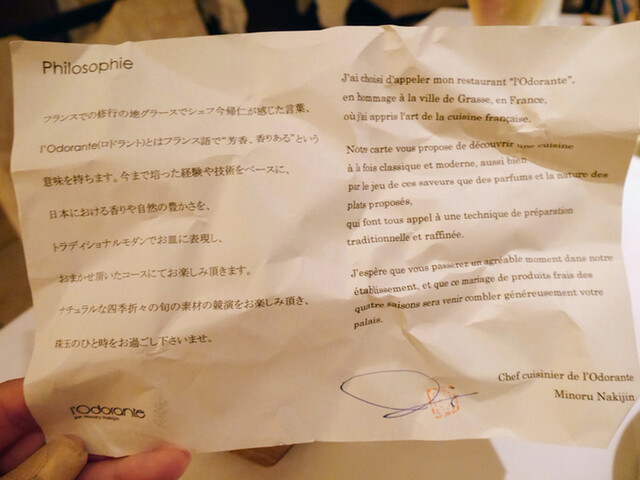 Philosophie
フランスでの修行の地グラースでシェフ今帰仁が感じた言葉、
l'Odorante(ロドラント)とはフランス語で"芳香、香りある"という
意味を持ちます。今まで培った経験や技術をベースに、
日本における香りや自然の豊かさを、
トラディショナルモダンでお皿に表現し、
おまかせ頂いたコースにてお楽しみ頂きます。
ナチュラルな四季折々の旬の素材の競演をお楽しみ頂き、
珠玉のひと時をお過ごし下さいませ。
l'Odorante
par Minoru Nakijin
J'ai choisi d'appeler mon restaurant "l'Odorante",
en hommage à la ville de Grasse, en France,
où j'ai appris l'art de la cuisine française.
Notre carte vous propose de découvrir une cuisine
à à fois classique et moderne, aussi bien
par le jeu de ces saveurs que des parfums et la nature des
plats proposés,
qui font tous appel à une technique de préparation
traditionnelle et raffinée.
J'espère que vous passerez un agréable moment dans notre
établissement, et que ce mariage de produits frais des
quatre saisons sera venir combler généreusement votre
palais.
Chef cuisinier de l'Odorante
Minoru Nakijin